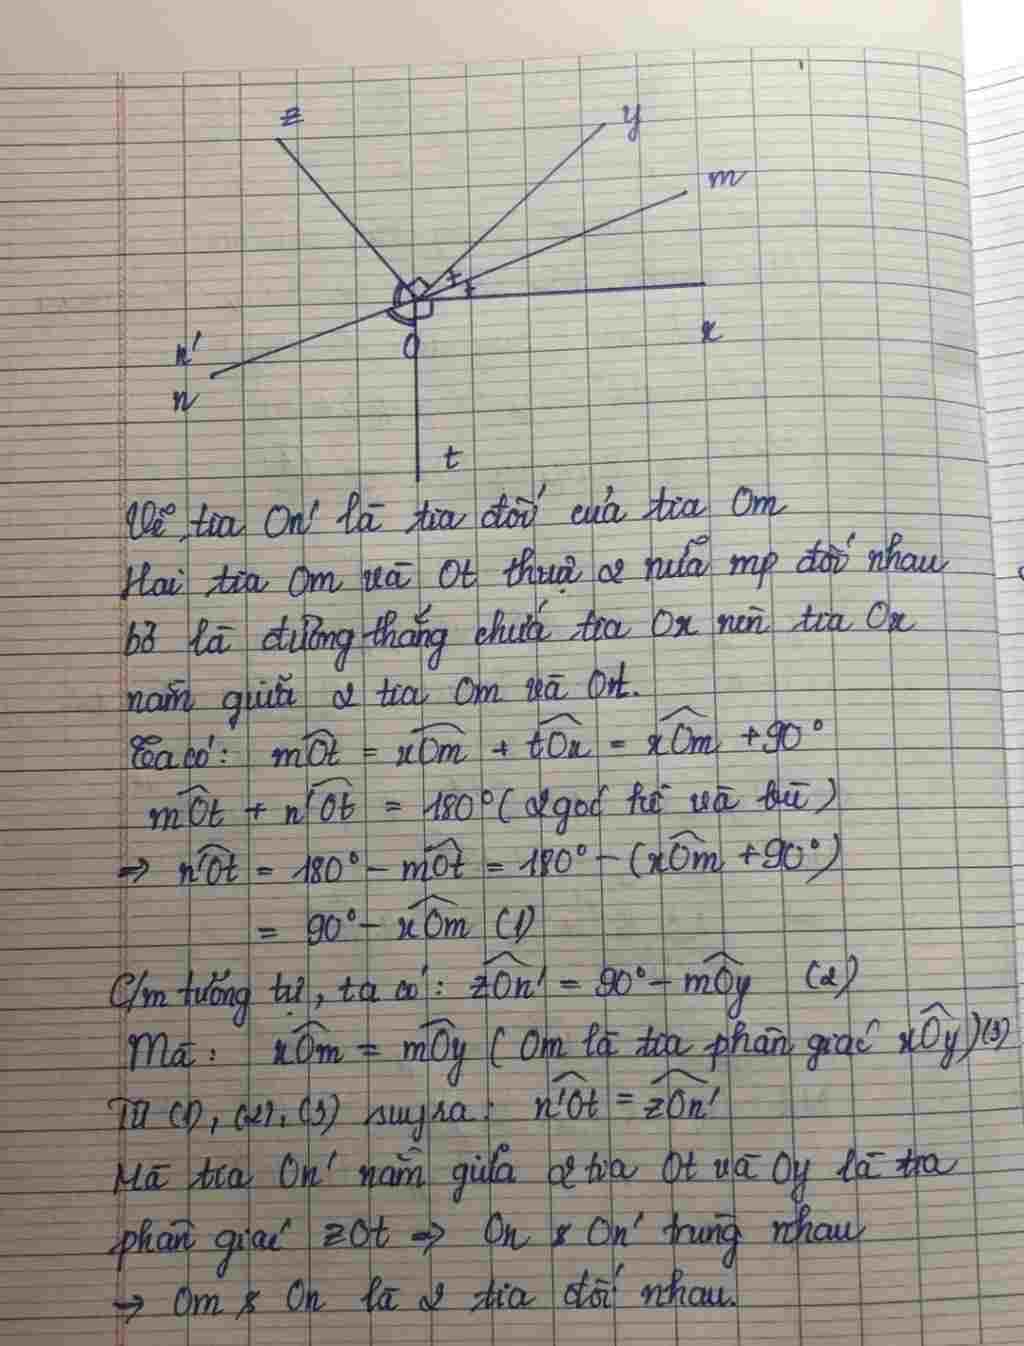 z
y
m
n'
O
x
n
t
Vẽ tia On' là tia đối của tia Om
Hai tia Om và Ot thuộc 2 nửa mp đối nhau
bờ là đường thẳng chứa tia Ox nên tia Ox
nằm giữa 2 tia Om và Ot.
Ta có: mÔt = xÔm + tÔx = xÔm + 90°
mÔt + n'Ôt = 180° (2 góc kề và bù)
⇒ n'Ôt = 180° - mÔt = 180° - (xÔm + 90°)
= 90° - xÔm (1)
C/m tương tự, ta có: zÔn' = 90° - mÔy (2)
Mà: xÔm = mÔy (Om là tia phân giác xÔy) (3)
Từ (1), (2), (3) suy ra: n'Ôt = zÔn'
Mà tia On' nằm giữa 2 tia Ot và Oy là tia
phân giác zOt ⇒ On & On' trùng nhau
⇒ Om & On là 2 tia đối nhau.